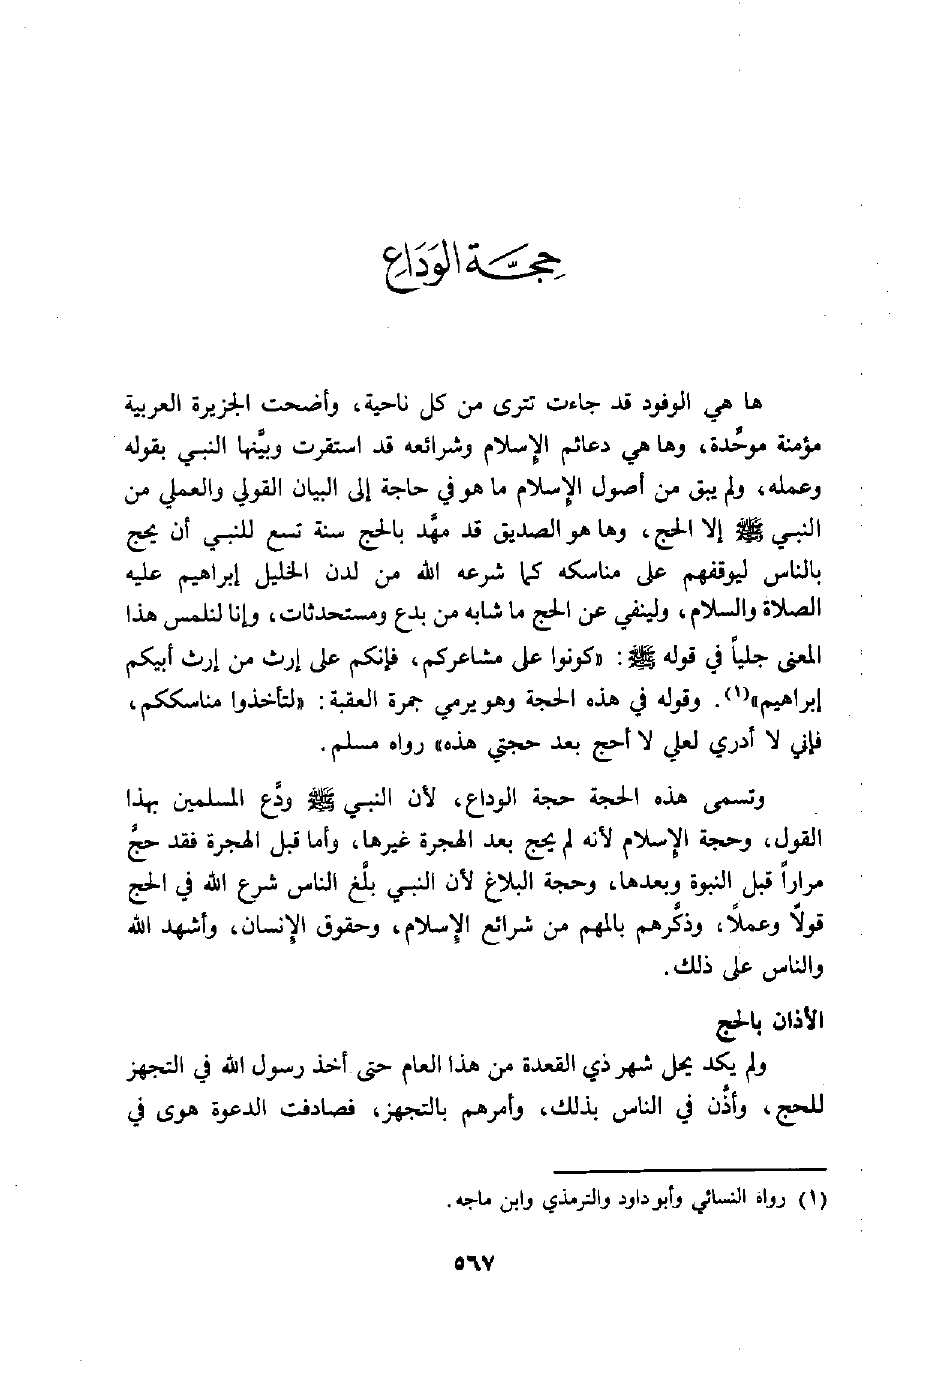 حِجَّة الوَدَاعِ
ها هي الوفود قد جاءت تترى من كل ناحية، وأضحت الجزيرة العربية
مؤمنة موحِّدة، وها هي دعائم الإسلام وشرائعه قد استقرت وبيَّنها النبي بقوله
وعمله، ولم يبق من أصول الإسلام ما هو في حاجة إلى البيان القولي والعملي من
النبي ﷺ إلا الحج، وها هو الصديق قد مهَّد بالحج سنة تسع للنبي أن يحج
بالناس ليوقفهم على مناسكه كما شرعه الله من لدن الخليل إبراهيم عليه
الصلاة والسلام، ولينفي عن الحج ما شابه من بدع ومستحدثات، وإنا لنلمس هذا
المعنى جلياً في قوله ﷺ: «كونوا على مشاعركم، فإنكم على إرث من إرث أبيكم
إبراهيم»(١). وقوله في هذه الحجة وهو يرمي جمرة العقبة: «لتأخذوا مناسككم،
فإني لا أدري لعلي لا أحج بعد حجتي هذه» رواه مسلم.
وتسمى هذه الحجة حجة الوداع، لأن النبي ﷺ ودَّع المسلمين بهذا
القول، وحجة الإسلام لأنه لم يحج بعد الهجرة غيرها، وأما قبل الهجرة فقد حجَّ
مراراً قبل النبوة وبعدها، وحجة البلاغ لأن النبي بلَّغ الناس شرع الله في الحج
قولًا وعملًا، وذكَّرهم بالمهم من شرائع الإسلام، وحقوق الإنسان، وأشهد الله
والناس على ذلك.
الأذان بالحج
ولم يكد يحل شهر ذي القعدة من هذا العام حتى أخذ رسول الله في التجهز
للحج، وأذَّن في الناس بذلك، وأمرهم بالتجهز، فصادفت الدعوة هوى في
(١) رواه النسائي وأبو داود والترمذي وابن ماجه.
٥٦٧